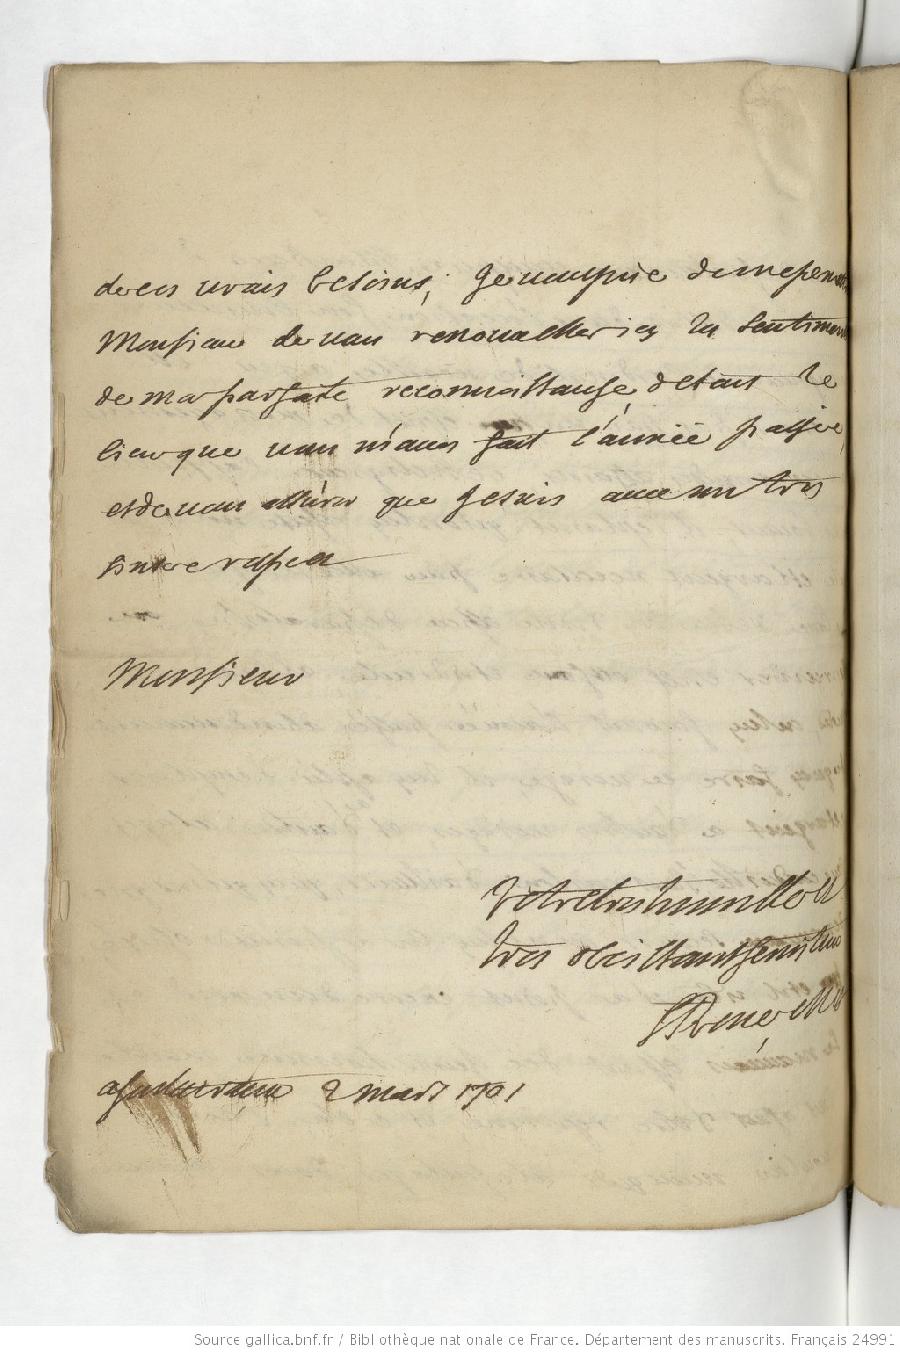 de ces vrais besoins, Je vous prie de me permettre
Monsieur de vous renouveller icy les sentimens
de ma parfaite reconnoissance de tous le
bien que vous m'aves fait l'année passée,
et de vous assurer que je suis avec un tres
sincere respect
Monsieur
Votre tres humble et
tres obeissant serviteur
a Amsterdam 2 mars 1701
Source gallica.bnf.fr / Bibliothèque nationale de France. Département des manuscrits. Français 24991